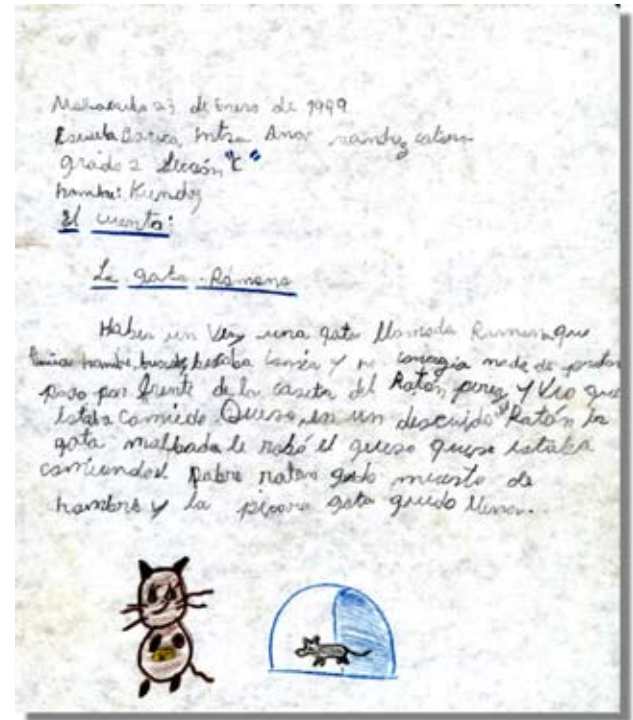 23 de Enero de 1999
Escuela Básica Ana
grado 2 sección "C"
nombre: Kendy
El cuento:
La gata Ramona
Habia un Vez una gata llamada Ramona que
tenia hambre, buscaba comia y no conseguia nada de pronto
paso por frente de la casita del Ratón perez y Vio que
estaba comiedo Queso, en un descuido Ratón la
gata malbada le robó el queso que se estaba
comiendo el pobre raton quedo muerto de
hambre y la picara gata quedo llena.